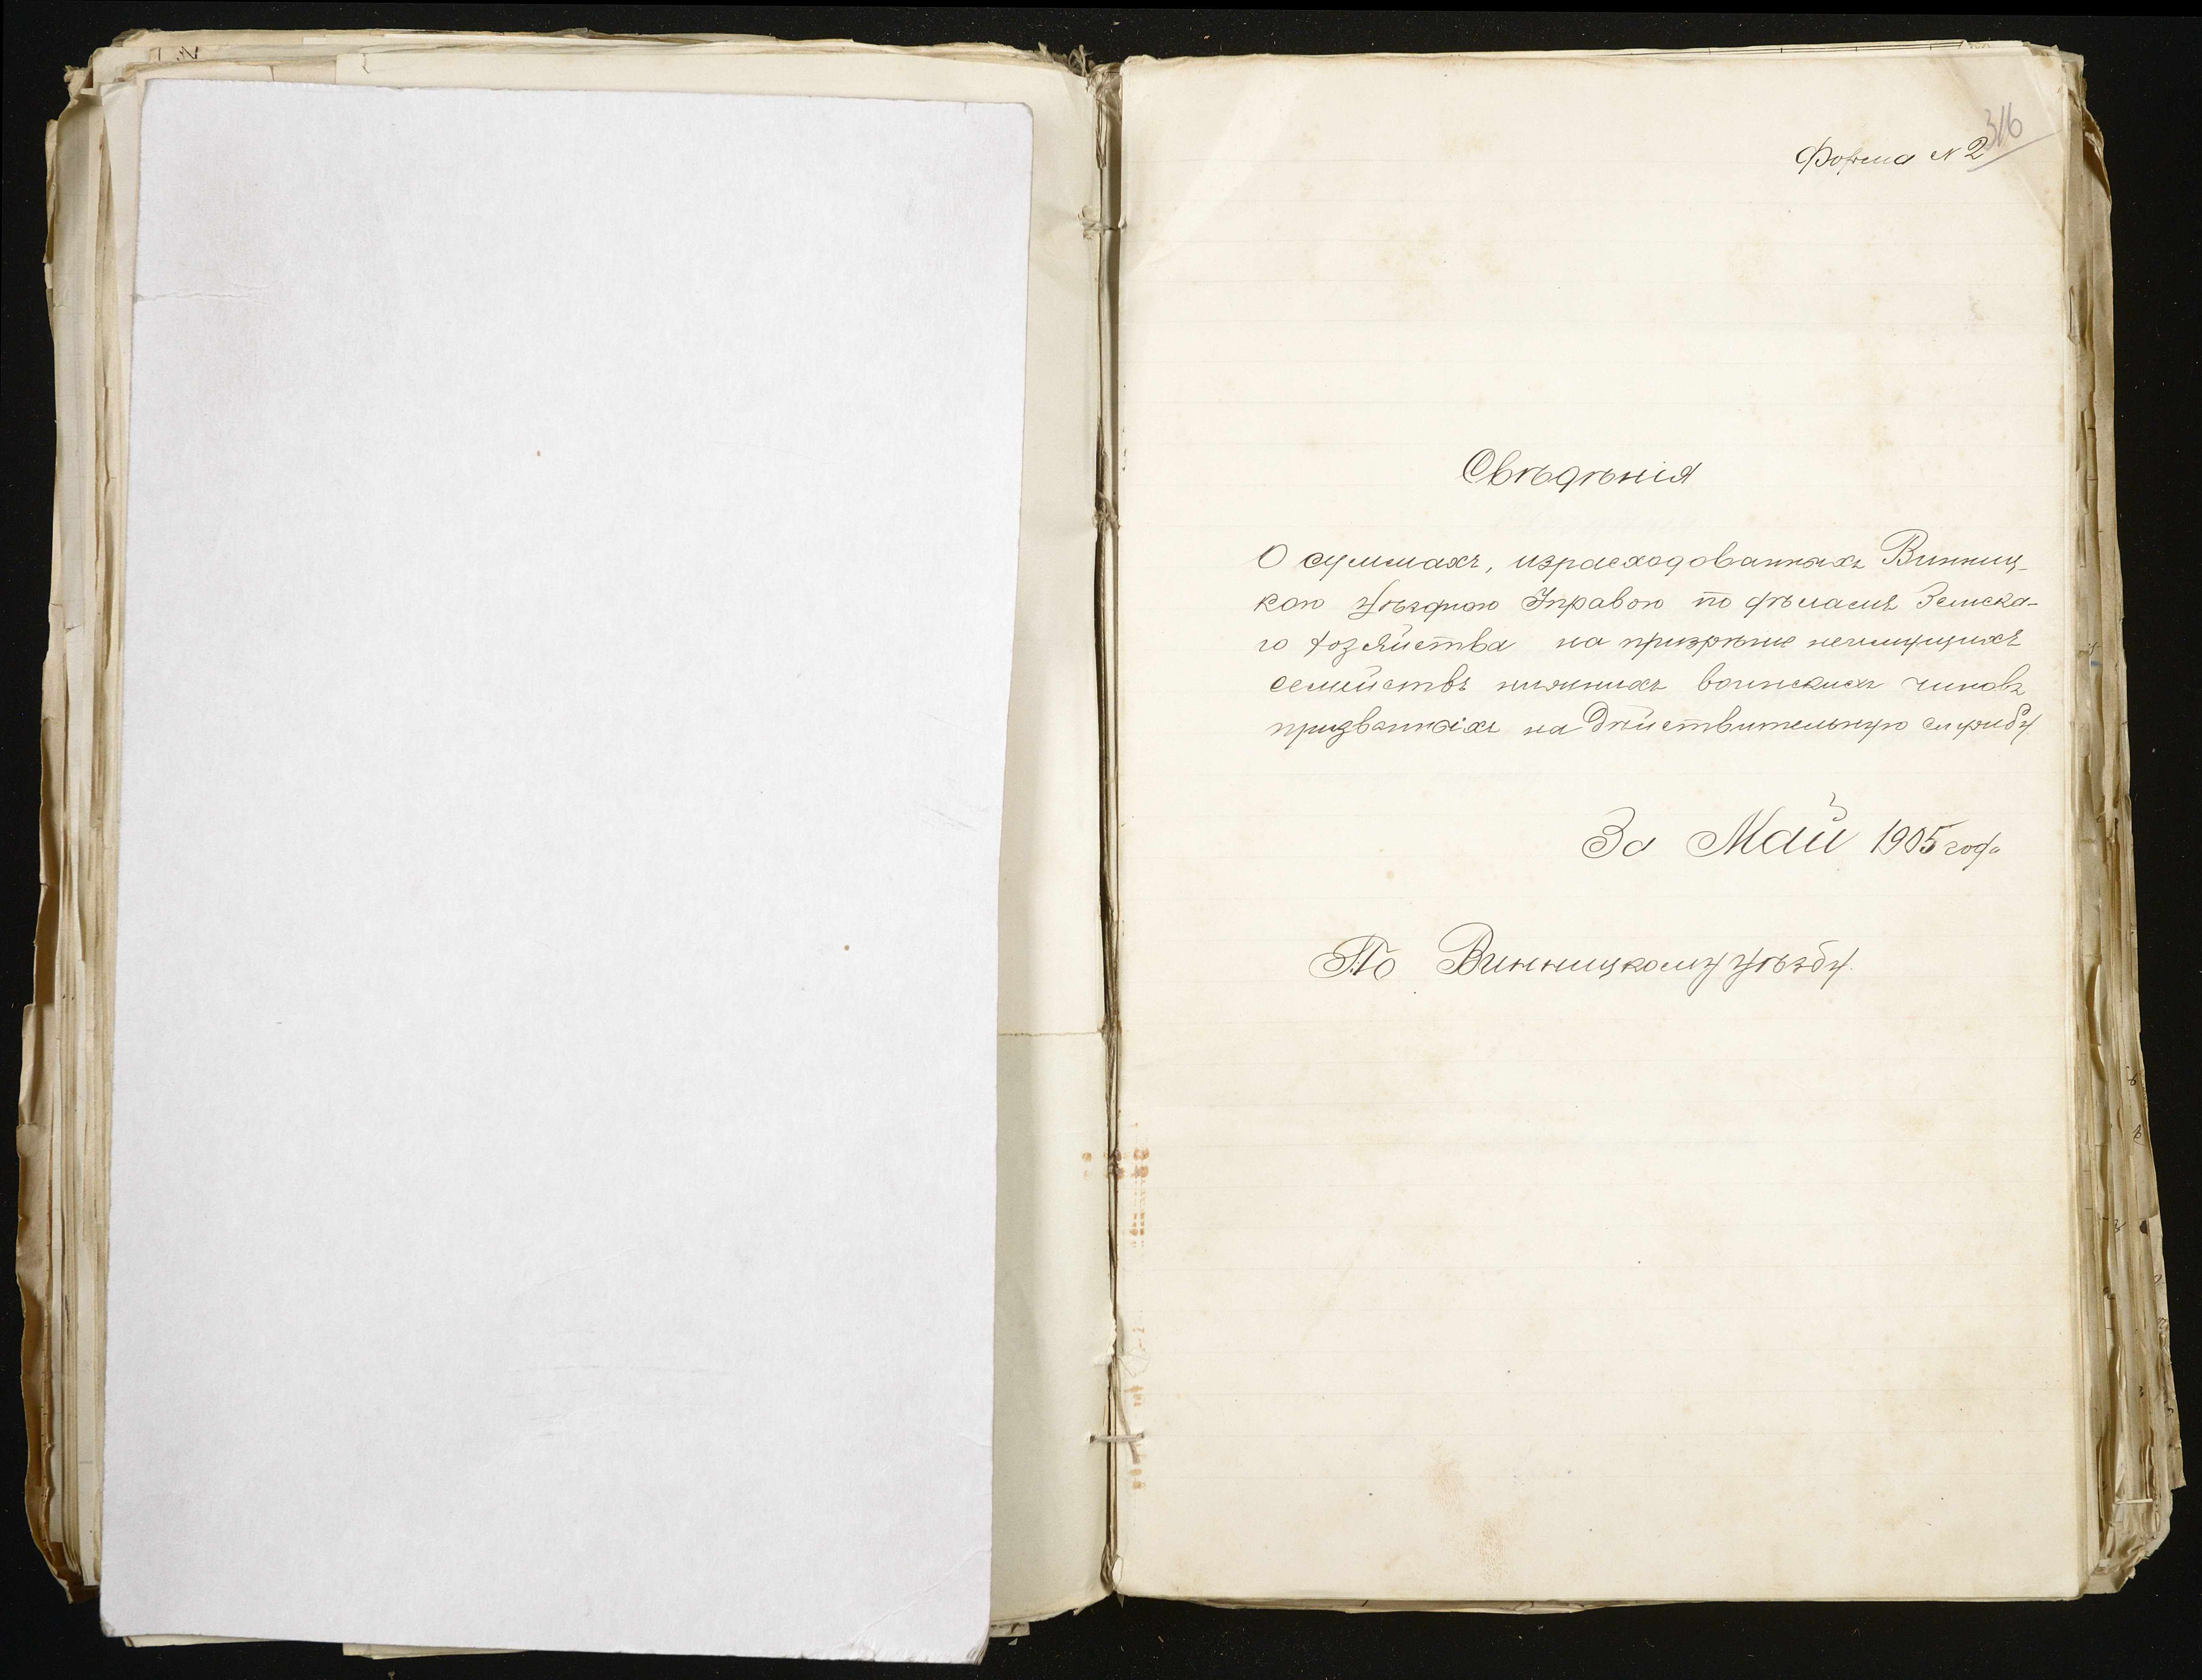 316
Форма № 2
Свѣдѣнія
О суммахъ, израсходованныхъ Винниц-
кою Уѣздною Управою по дѣламъ Земска-
го Хозяйства на призрѣніе неимущихъ
семействъ нижнихъ воинскихъ чиновъ
призванныхъ на Дѣйствительную службу
За Май 1905 года
По Винницкому уѣзду.